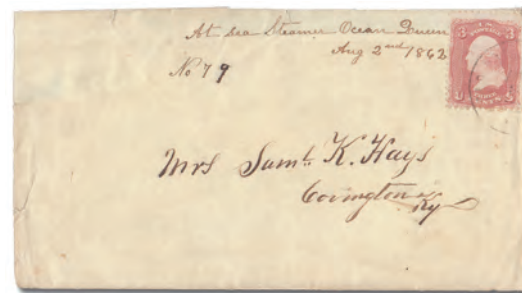 At sea Steamer Ocean Queen
Aug 2nd 1862
No 79
3 3
Mrs Saml. K. Hays
Covington
Ky